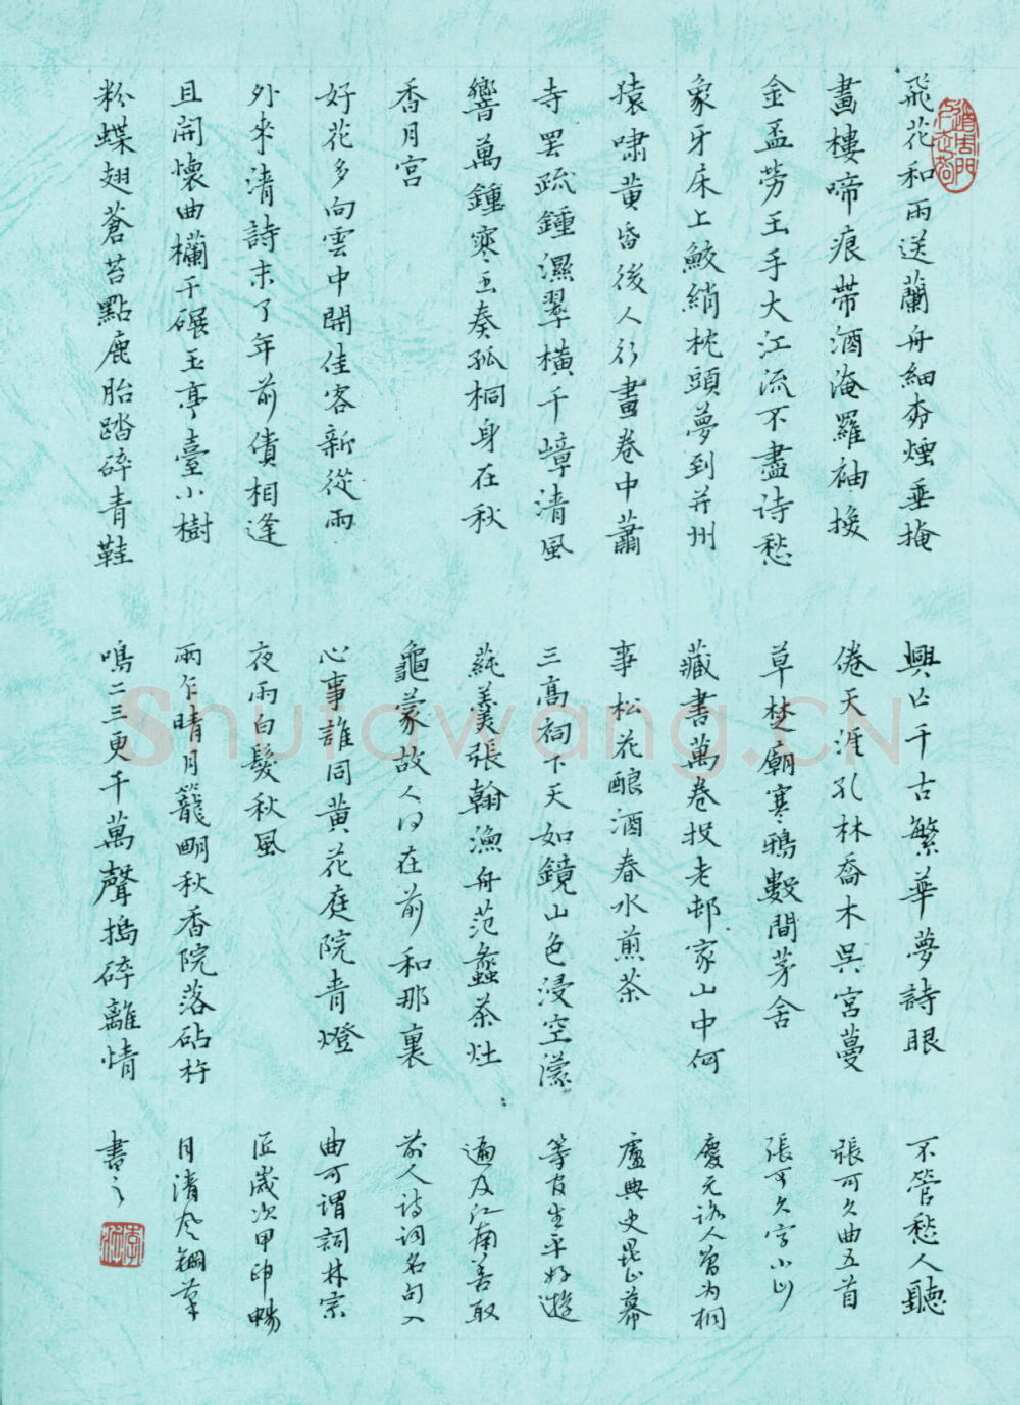 飛花和雨送蘭舟細柳煙垂掩
畫樓啼痕帶酒淹羅袖換
金盃勞玉手大江流不盡詩愁
象牙床上鮫綃枕頭夢到并州
猿嘯黃昏後人行畫卷中蕭
寺罢疏鍾濕翠橫千嶂清風
響萬鍾寒玉奏孤桐身在秋
香月宮
好花多向雲中開佳客新從雨
外來清詩未了年前債相逢
且開懷曲欄干碾玉亭臺小樹
粉蝶翅蒼苔點鹿胎踏碎青鞋
興亡千古繁華夢詩眼
倦天涯孔林喬木吳宮蔓
草楚廟寒鴉數間茅舍
藏書萬卷投老邨家山中何
事松花釀酒春水煎茶
三高祠下天如鏡山色浸空濛
蒓羹張翰漁舟范蠡茶灶
龜蒙故人何在前和那裏
心事誰同黃花庭院青燈
夜雨白髮秋風
雨乍晴月籠明秋香院落砧杵
鳴二三更千萬聲搗碎離情
不管愁人聽
張可久曲五首
張可久字小山
慶元路人曾为桐
廬典史崑山幕
等官生平好遊
遍及江南善取
前人詩词名句入
曲可謂詞林宗
匠歲次甲申暢
月清鋼筆
書之
Shufawang.CN